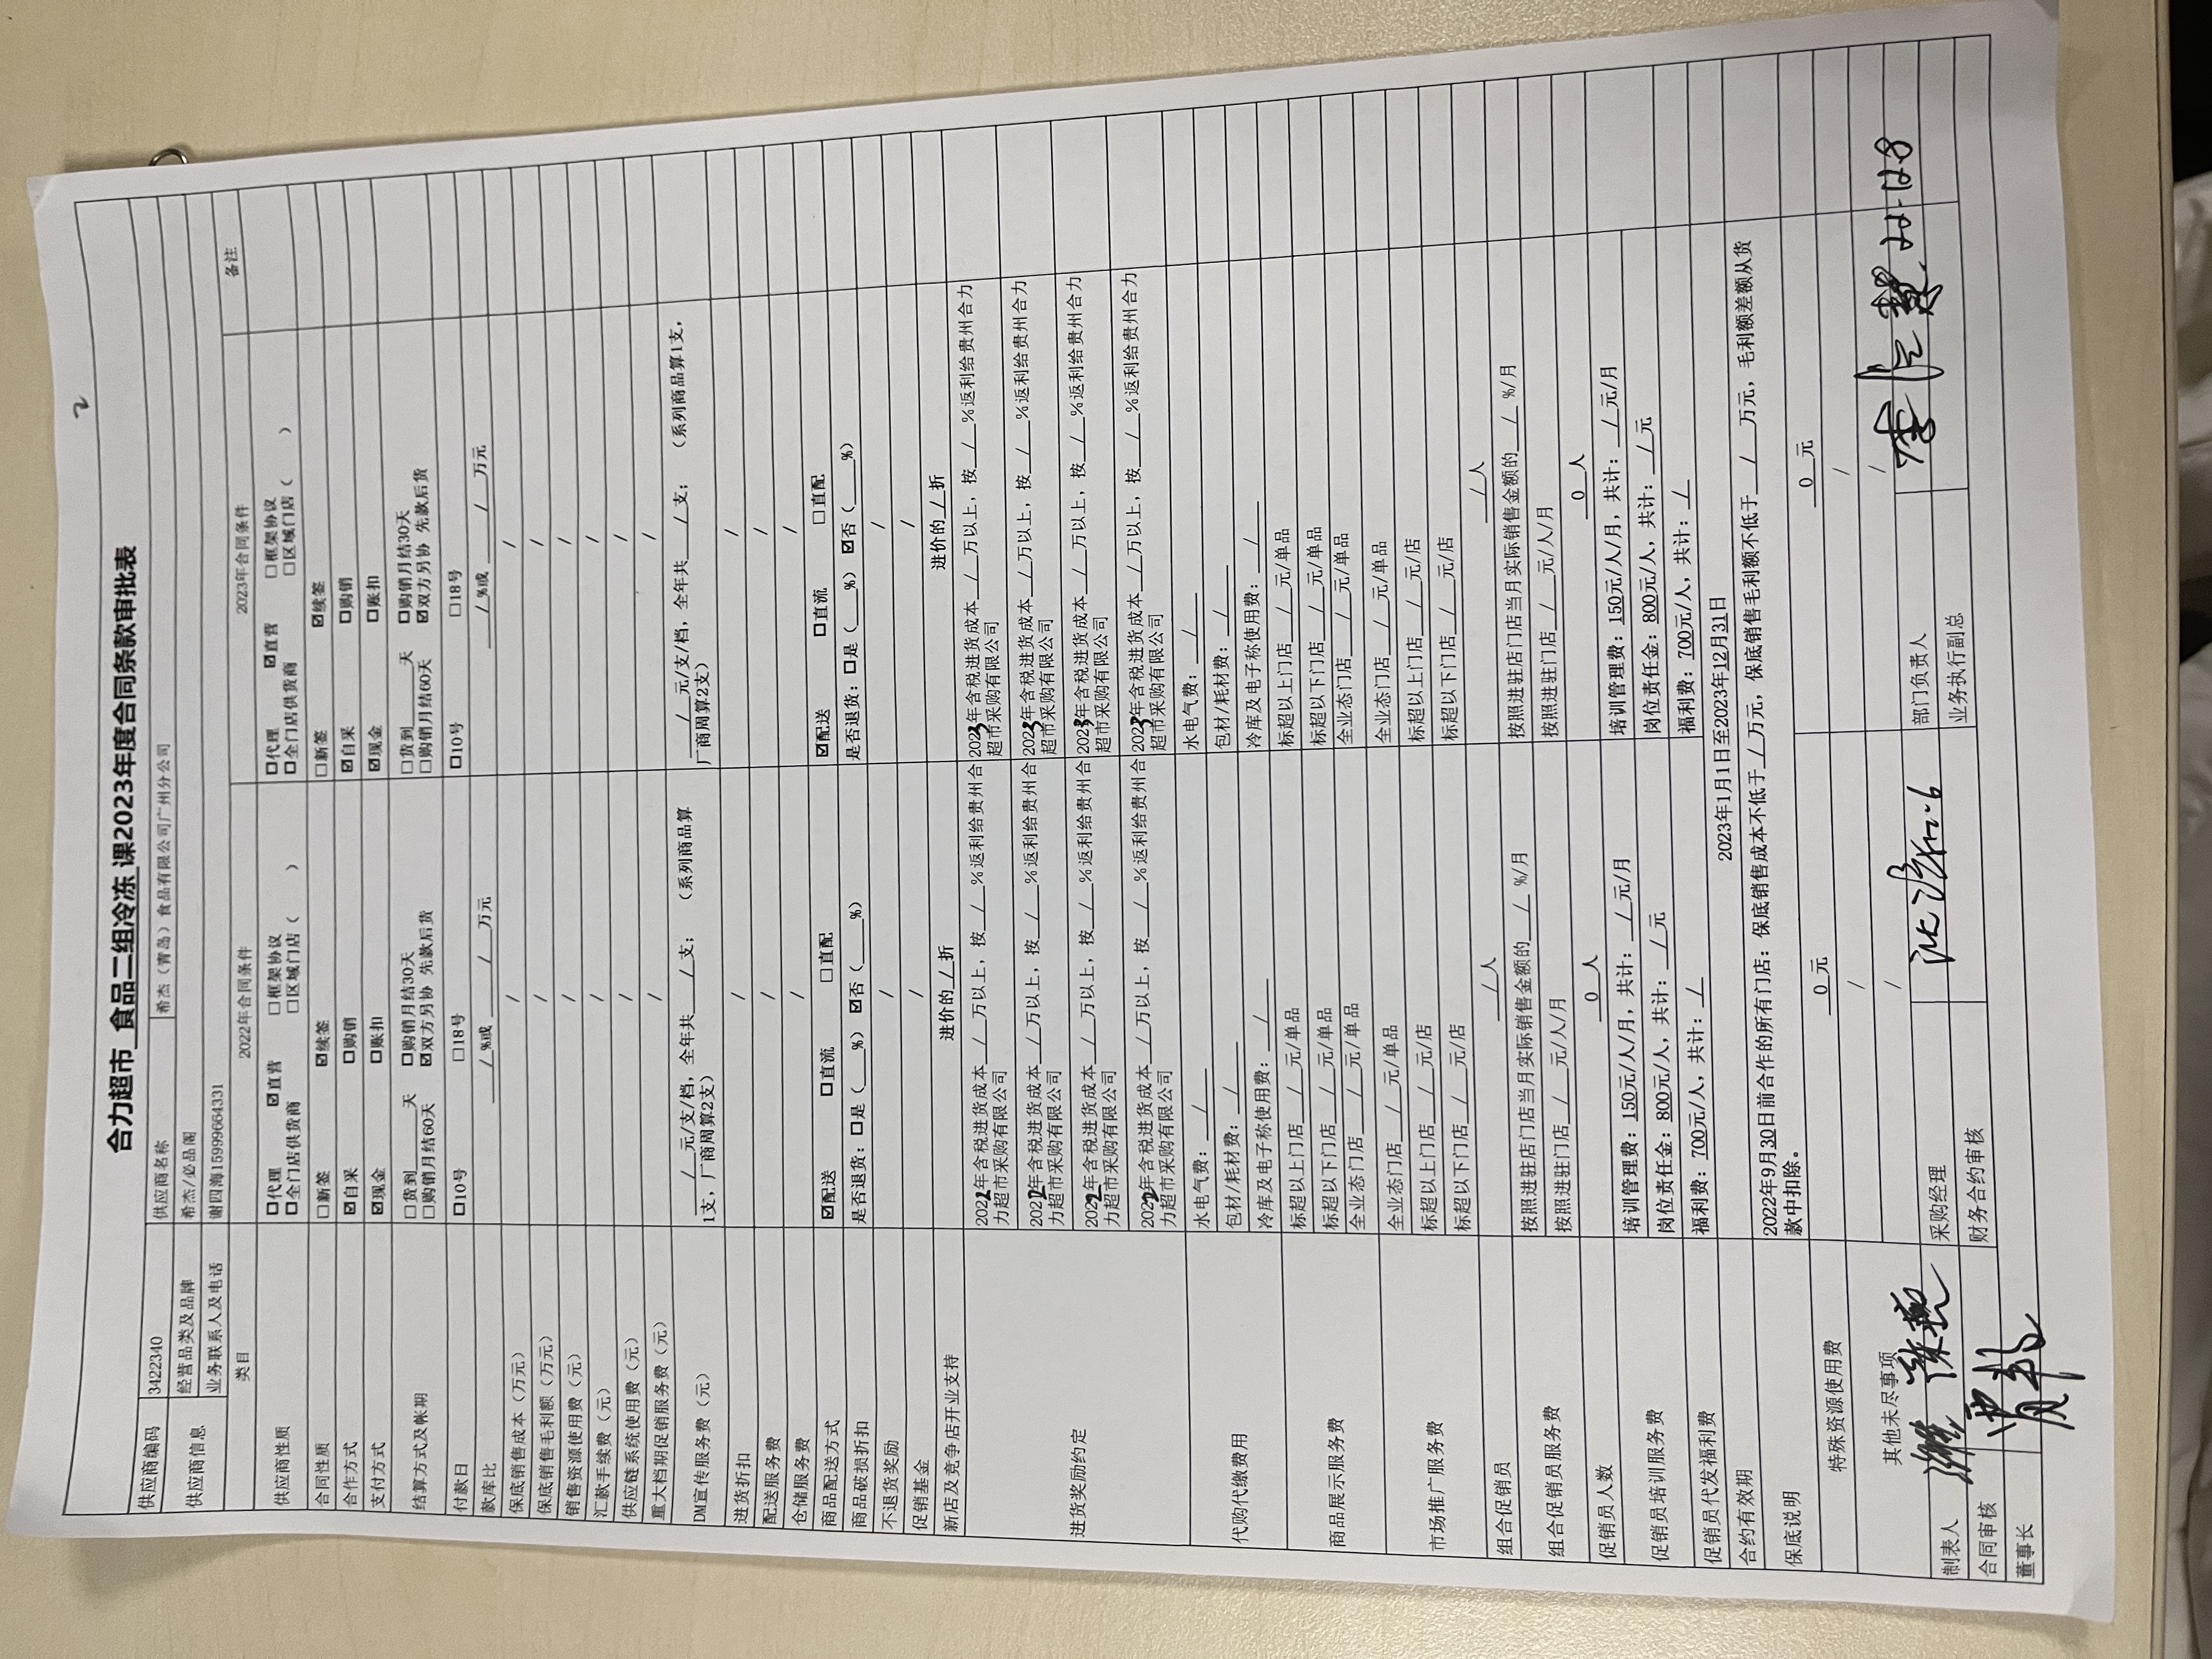 2
合力超市 食品二组冷冻 课2023年度合同条款审批表
供应商编码 3422340 供应商名称 希杰（青岛）食品有限公司广州分公司
供应商信息 经营品类及品牌 希杰/必品阁
业务联系人及电话 谢四海15999664331
类目 2022年合同条件 2023年合同条件 备注
供应商性质 □代理 ☑直营 □框架协议 □代理 ☑直营 □框架协议
□全门店供货商 □区域门店（ ） □全门店供货商 □区域门店（ ）
合同性质 □新签 ☑续签 □新签 ☑续签
合作方式 ☑自采 □购销 ☑自采 □购销
支付方式 ☑现金 □账扣 ☑现金 □账扣
结算方式及帐期 □货到___天 □购销月结30天 □货到___天 □购销月结30天
□购销月结60天 ☑双方另协 先款后货 □购销月结60天 ☑双方另协 先款后货
付款日 □10号 □18号 □10号 □18号
款库比 / %或 / 万元 / %或 / 万元
保底销售成本（万元） / /
保底销售毛利额（万元） / /
销售资源使用费（元） / /
汇款手续费（元） / /
供应链系统使用费（元） / /
重大档期促销服务费（元） / /
DM宣传服务费（元） / 元/支/档，全年共 / 支； （系列商品算 / 元/支/档，全年共 / 支； （系列商品算1支，
1支，厂商周算2支） 厂商周算2支）
进货折扣 / /
配送服务费 / /
仓储服务费 / /
商品配送方式 ☑配送 □直流 □直配 ☑配送 □直流 □直配
商品破损折扣 是否退货：□是（___%）☑否（___%） 是否退货：□是（___%）☑否（___%）
不退货奖励 / /
促销基金 / /
新店及竞争店开业支持 进价的 / 折 进价的 / 折
进货奖励约定 2022年含税进货成本 / 万以上，按 / %返利给贵州合 2023年含税进货成本 / 万以上，按 / %返利给贵州合力
力超市采购有限公司 超市采购有限公司
2022年含税进货成本 / 万以上，按 / %返利给贵州合 2023年含税进货成本 / 万以上，按 / %返利给贵州合力
力超市采购有限公司 超市采购有限公司
2022年含税进货成本 / 万以上，按 / %返利给贵州合 2023年含税进货成本 / 万以上，按 / %返利给贵州合力
力超市采购有限公司 超市采购有限公司
2022年含税进货成本 / 万以上，按 / %返利给贵州合 2023年含税进货成本 / 万以上，按 / %返利给贵州合力
力超市采购有限公司 超市采购有限公司
代购代缴费用 水电气费： / 水电气费： /
包材/耗材费： / 包材/耗材费： /
冷库及电子称使用费： / 冷库及电子称使用费： /
商品展示服务费 标超以上门店 / 元/单品 标超以上门店 / 元/单品
标超以下门店 / 元/单品 标超以下门店 / 元/单品
全业态门店 / 元/单品 全业态门店 / 元/单品
市场推广服务费 全业态门店 / 元/单品 全业态门店 / 元/单品
标超以上门店 / 元/店 标超以上门店 / 元/店
标超以下门店 / 元/店 标超以下门店 / 元/店
组合促销员 / 人 / 人
组合促销员服务费 按照进驻店门店当月实际销售金额的 / %/月 按照进驻店门店当月实际销售金额的 / %/月
按照进驻门店 / 元/人/月 按照进驻门店 / 元/人/月
促销员人数 0 人 0 人
促销员培训服务费 培训管理费：150元/人/月，共计： / 元/月 培训管理费：150元/人/月，共计： / 元/月
岗位责任金：800元/人，共计： / 元 岗位责任金：800元/人，共计： / 元
促销员代发福利费 福利费：700元/人，共计： / 福利费：700元/人，共计： /
合约有效期 2023年1月1日至2023年12月31日
保底说明 2022年9月30日前合作的所有门店：保底销售成本不低于 / 万元，保底销售毛利额不低于 / 万元，毛利额差额从货
款中扣除。
特殊资源使用费 0 元 0 元
/ /
其他未尽事项 / /
制表人 采购经理 部门负责人 22.12.8
合同审核 财务合约审核 业务执行副总
董事长